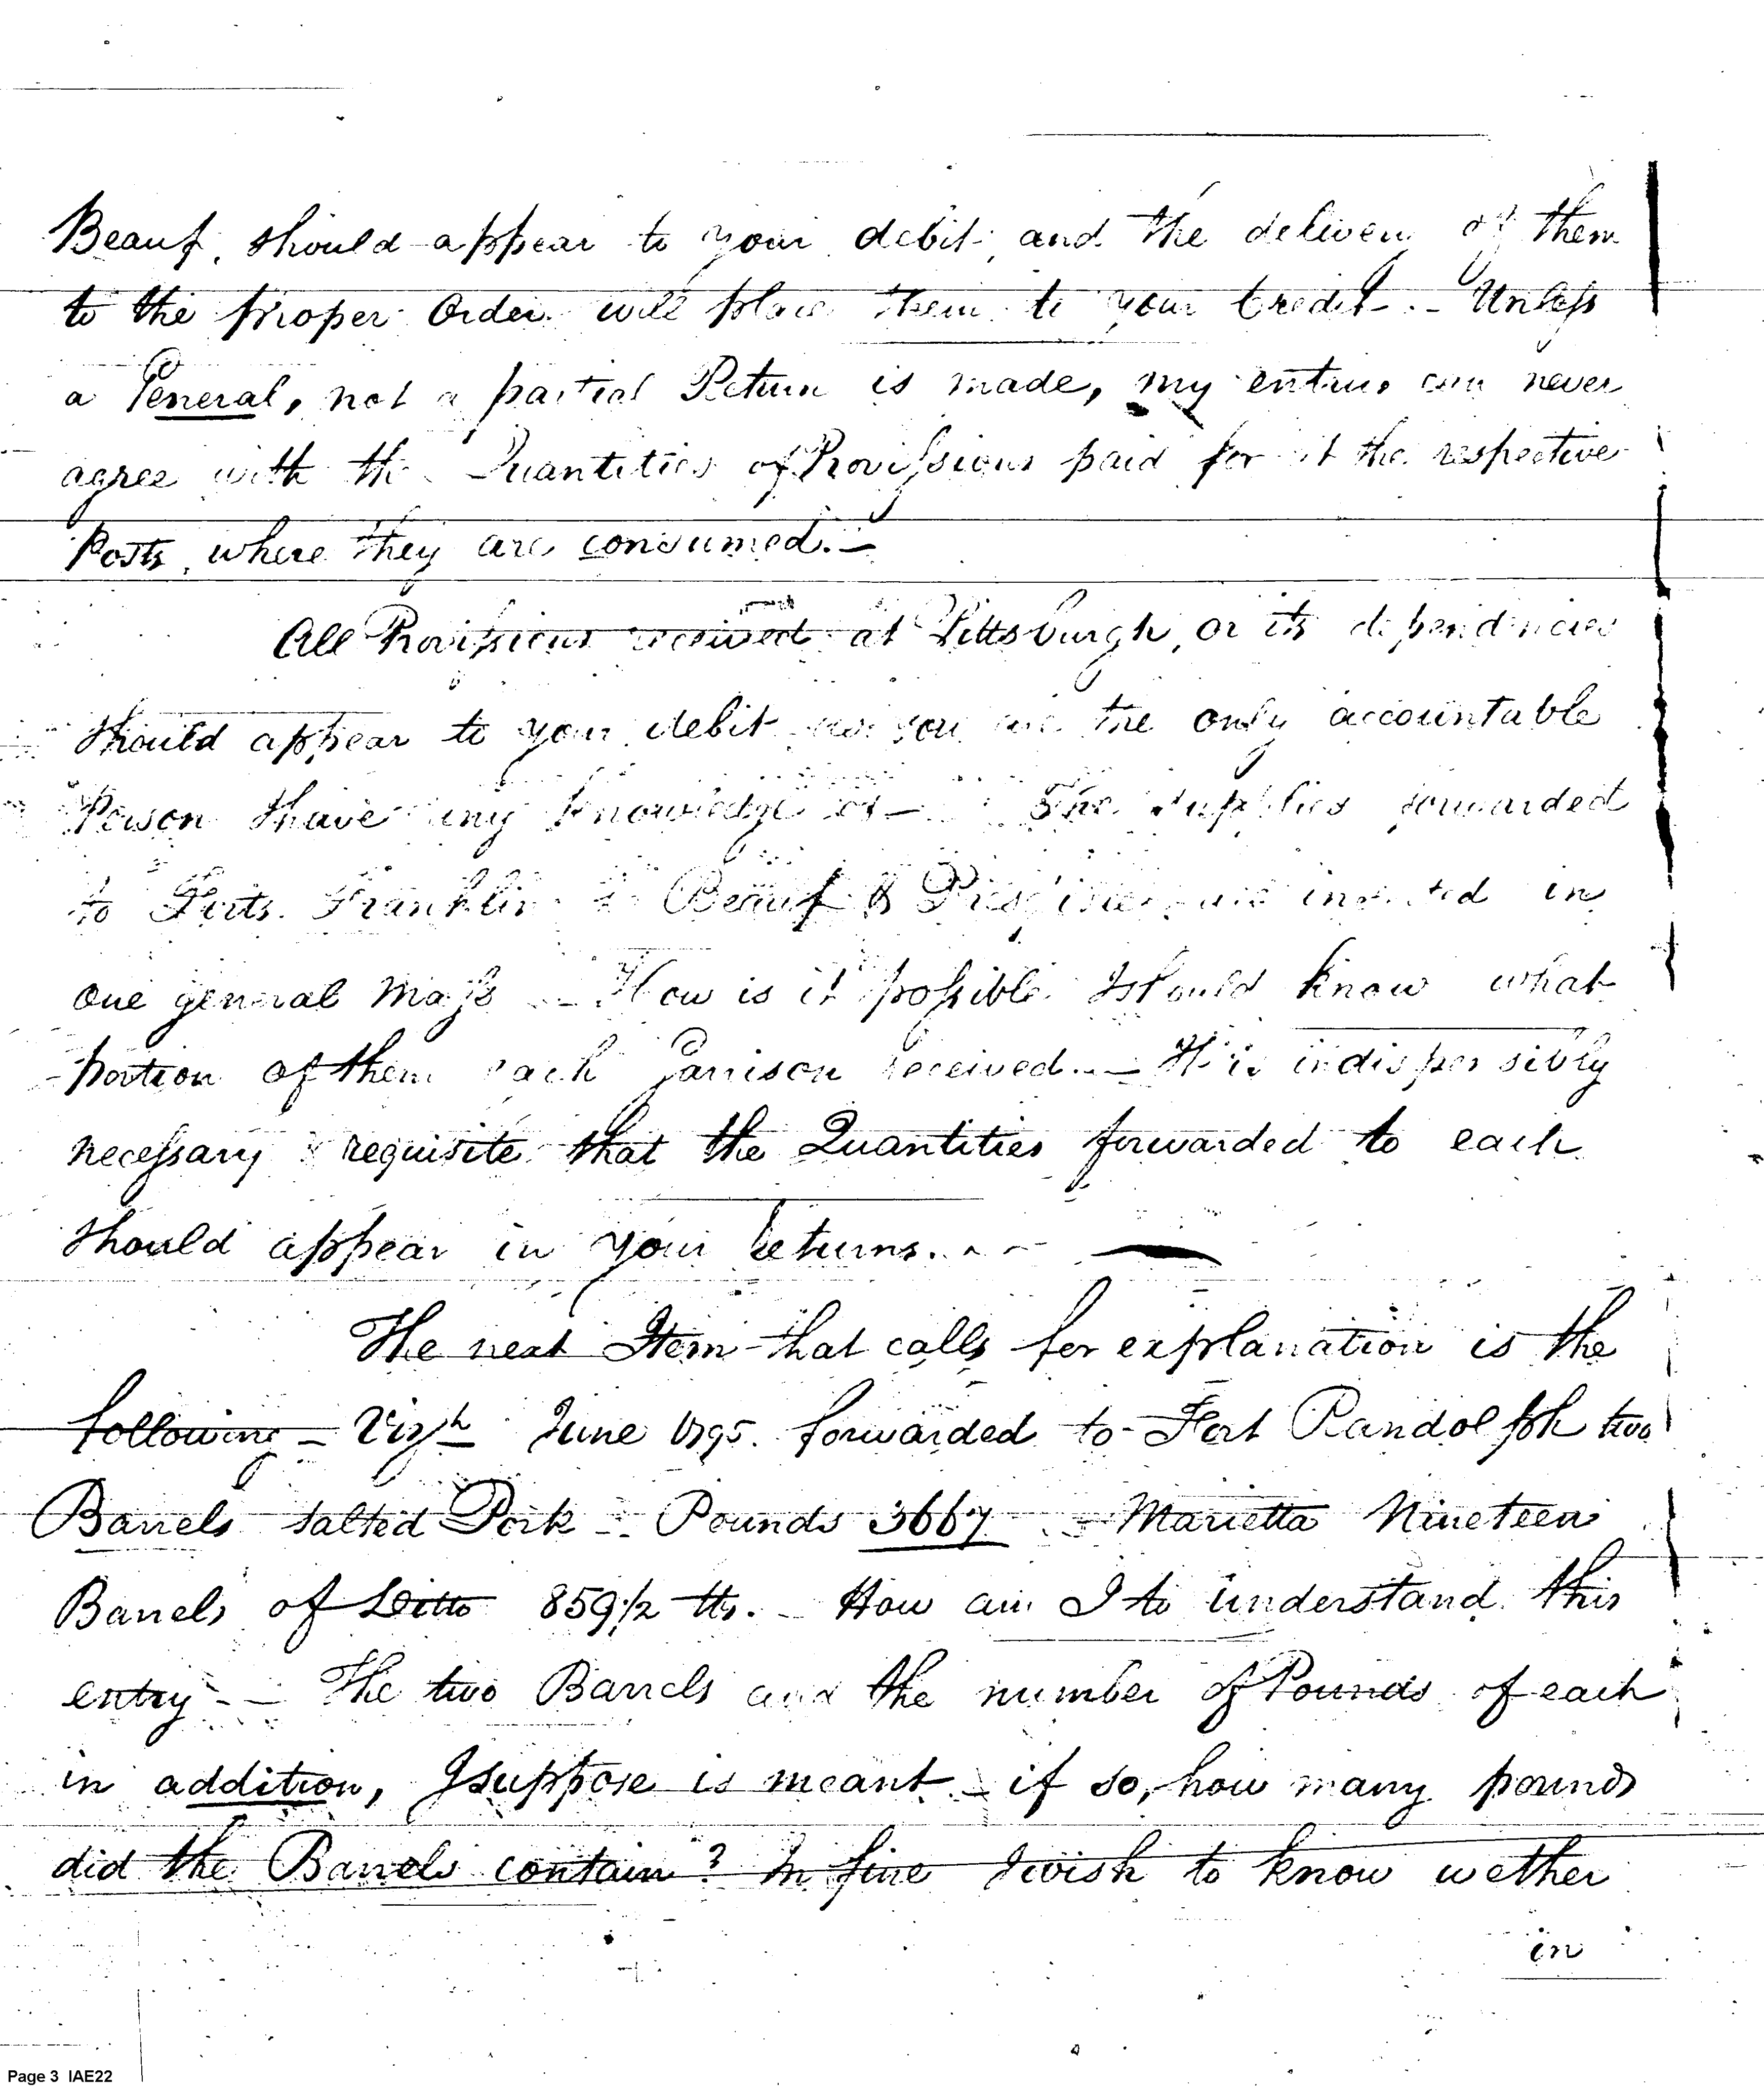 Beauf, should appear to your debit, and the delivery of them
to the proper Order will place them to your Credit. – Unless
a General, not a partial Return is made, my entries can never
agree with the Quantities of Provissions paid for at the respective
Posts, where they are consumed. –
All Provissions received at Pittsburgh, or its dependencies
should appear to your debit you are the only accountable
Person I have any knowledge of – The supplies forwarded
to Forts. Franklin Beauf & Presq'isle are in
one general Mass – How is it possible I should know what
portion of them each Garrison received. – It is indispensibly
necessary & requisite that the Quantities forwarded to each
should appear in your Returns. –
The next Item that calls for explanation is the
following – Vizt June 1795. forwarded to Fort Randolph two
Barrels salted Pork – Pounds 3667 – Marietta Nineteen
Barrels of Ditto 859½ lbs. – How am I to understand this
entry – The two Barrels and the number of Pounds of each
in addition, I suppose is meant – if so, how many pounds
did the Barrels contain? In fine I wish to know wether
in
Page 3 IAE22